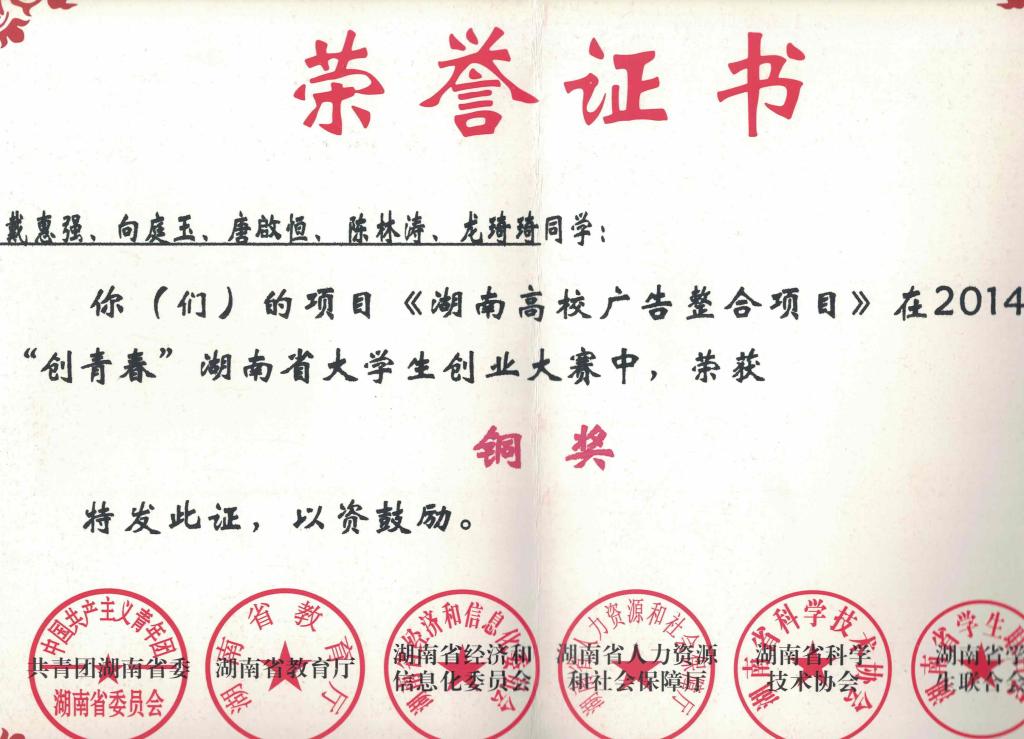 荣誉证书
戴惠强、向庭玉、唐啟恒、陈林涛、龙琦琦同学：
你（们）的项目《湖南高校广告整合项目》在2014
“创青春”湖南省大学生创业大赛中，荣获
铜奖
特发此证，以资鼓励。
中国共产主义青年团
湖南省委员会
共青团湖南省委
湖南省教育厅
湖南省教育厅
经济和信息化
湖南省经济和
信息化委员会
人力资源和社会
湖南省人力资源
和社会保障厅
湖南省科学技术协会
湖南省科学
技术协会
湖南省学生联
湖南省学
生联合会